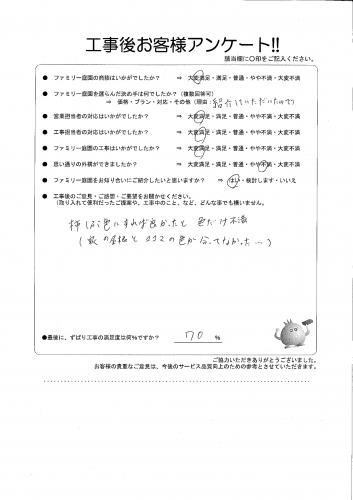 工事後お客様アンケート!!
該当欄に○印をご記入ください。
● ファミリー庭園の商談はいかがでしたか? ⇒ 大変満足・満足・普通・やや不満・大変不満
● ファミリー庭園を選らんだ決め手は何でしたか?(複数回答可)
⇒ 価格・プラン・対応・その他(理由:紹介していただいたので)
● 営業担当者の対応はいかがでしたか? ⇒ 大変満足・満足・普通・やや不満・大変不満
● 工事担当者の対応はいかがでしたか? ⇒ 大変満足・満足・普通・やや不満・大変不満
● 工事中の対応はいかがでしたか? ⇒ 大変満足・満足・普通・やや不満・大変不満
● 思い通りの外構ができましたか? ⇒ 大変満足・満足・普通・やや不満・大変不満
● ファミリー庭園をお知り合いにご紹介したいと思いますか? ⇒ はい・検討します・いいえ
● 工事後のご意見・ご感想・ご要望をお聞かせください。
(取り入れて便利だったご提案や、工事中のこと、など、どんな事でも構いません。
色にすれば良かったと 色だけ不満
の屋根と の色が合ってなかった…)
●最後に、ずばり工事の満足度は何%ですか? 70 %
ご協力いただきありがとうございました。
お客様の貴重なご意見は、今後のサービス品質向上のための参考とさせていただきます。